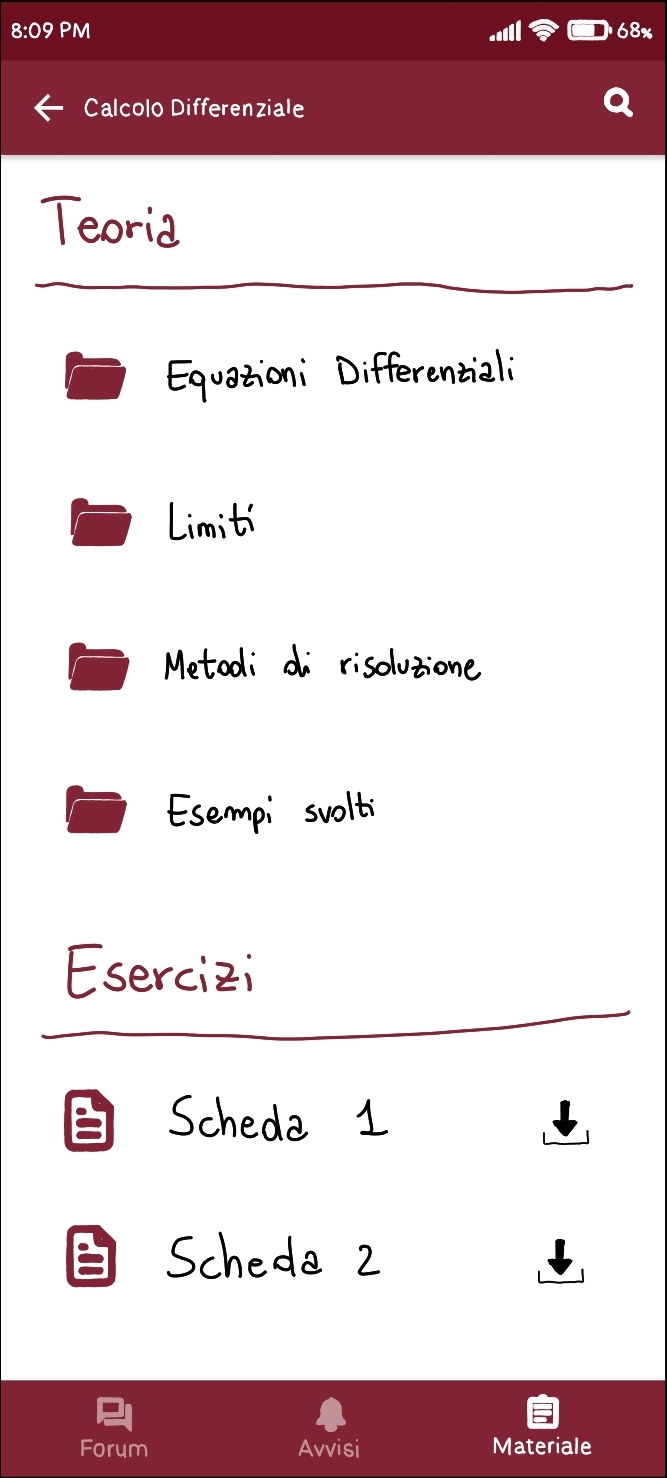 8:09 PM 68%
Calcolo Differenziale
Teoria
Equazioni Differenziali
Limiti
Metodi di risoluzione
Esempi svolti
Esercizi
Scheda 1
Scheda 2
Forum Avvisi Materiale